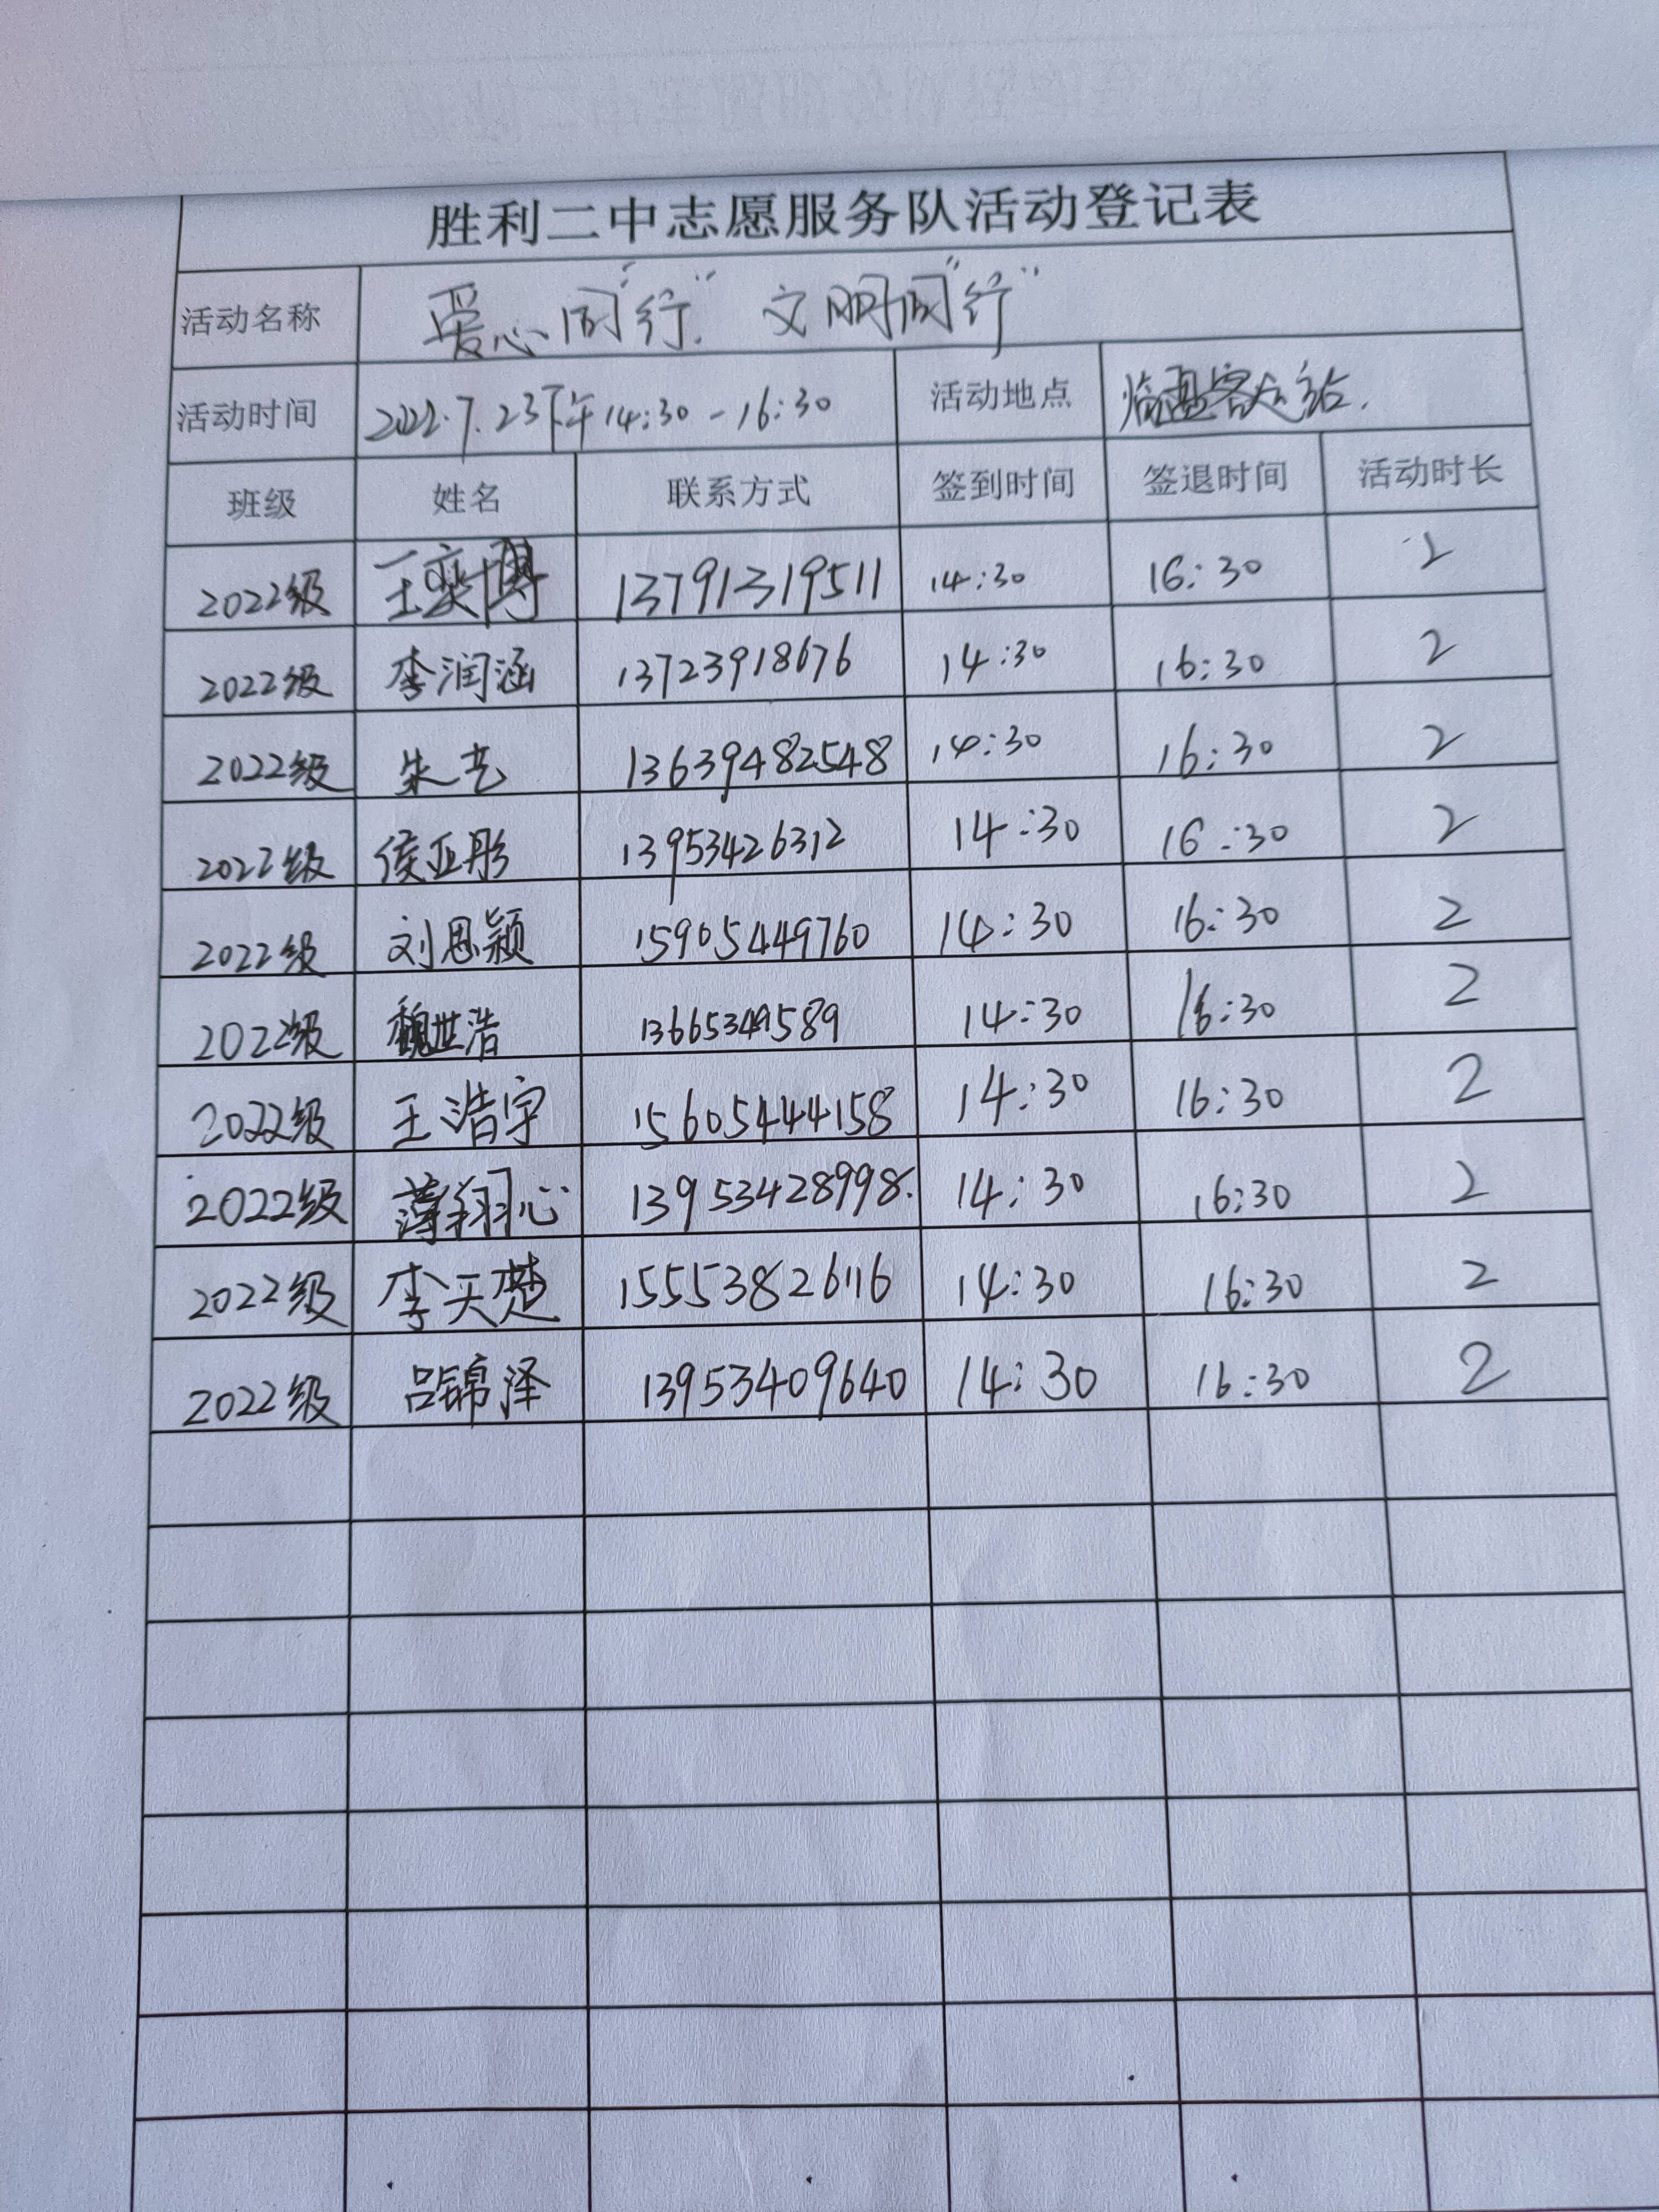 胜利二中志愿服务队活动登记表
活动名称 爱心同"行" 文明同"行"
活动时间 2022.7.23下午14:30-16:30 活动地点 临盘客运站.
班级 姓名 联系方式 签到时间 签退时间 活动时长
2022级 王奕博 13791319511 14:30 16:30 2
2022级 李润涵 13723918676 14:30 16:30 2
2022级 朱艺 13639482548 14:30 16:30 2
2022级 侯亚彤 13953426312 14:30 16:30 2
2022级 刘思颖 15905449760 14:30 16:30 2
2022级 魏世浩 14:30 16:30 2
2022级 王浩宇 15605444158 14:30 16:30 2
2022级 薄翔心 13953428998. 14:30 16:30 2
2022级 李天楚 15553826116 14:30 16:30 2
2022级 吕锦泽 13953409640 14:30 16:30 2